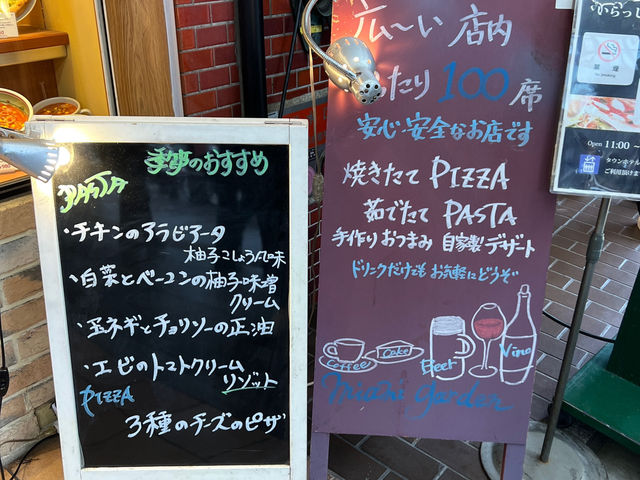 季節のおすすめ
PASTA
・チキンのアラビアータ
柚子こしょう風味
・白菜とベーコンの柚子味噌
クリーム
・玉ネギとチョリソーの正油
・エビのトマトクリーム
リゾット
PIZZA
3種のチーズのピザ
広〜い 店内
たり 100席
安心・安全なお店です
焼きたて PIZZA
茹でたて PASTA
手作りおつまみ 自家製デザート
ドリンクだけでも お気軽にどうぞ
Coffee
Cake
Beer
Vino
Miami Garden
禁煙
No Smoking
Open 11:00 〜
タウンホテル
ご利用頂けま